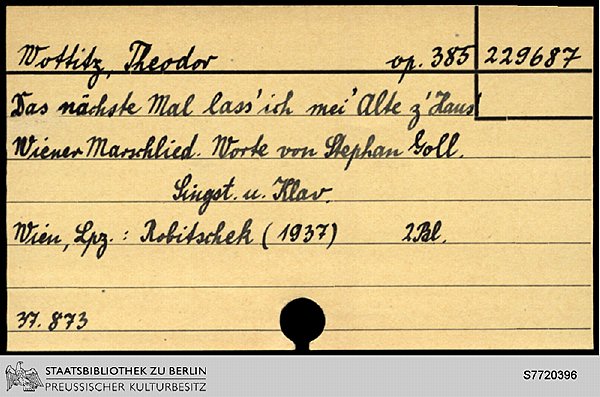 Wottitz, Theodor op. 385 229687
Das nächste Mal lass' ich mei' Alte z'Haus!
Wiener Marschlied. Worte von Stephan Goll.
Singst. u. Klav.
Wien, Lpz.: Robitschek (1937) 2 Bl.
37. 873
STAATSBIBLIOTHEK ZU BERLIN
PREUSSISCHER KULTURBESITZ
S7720396